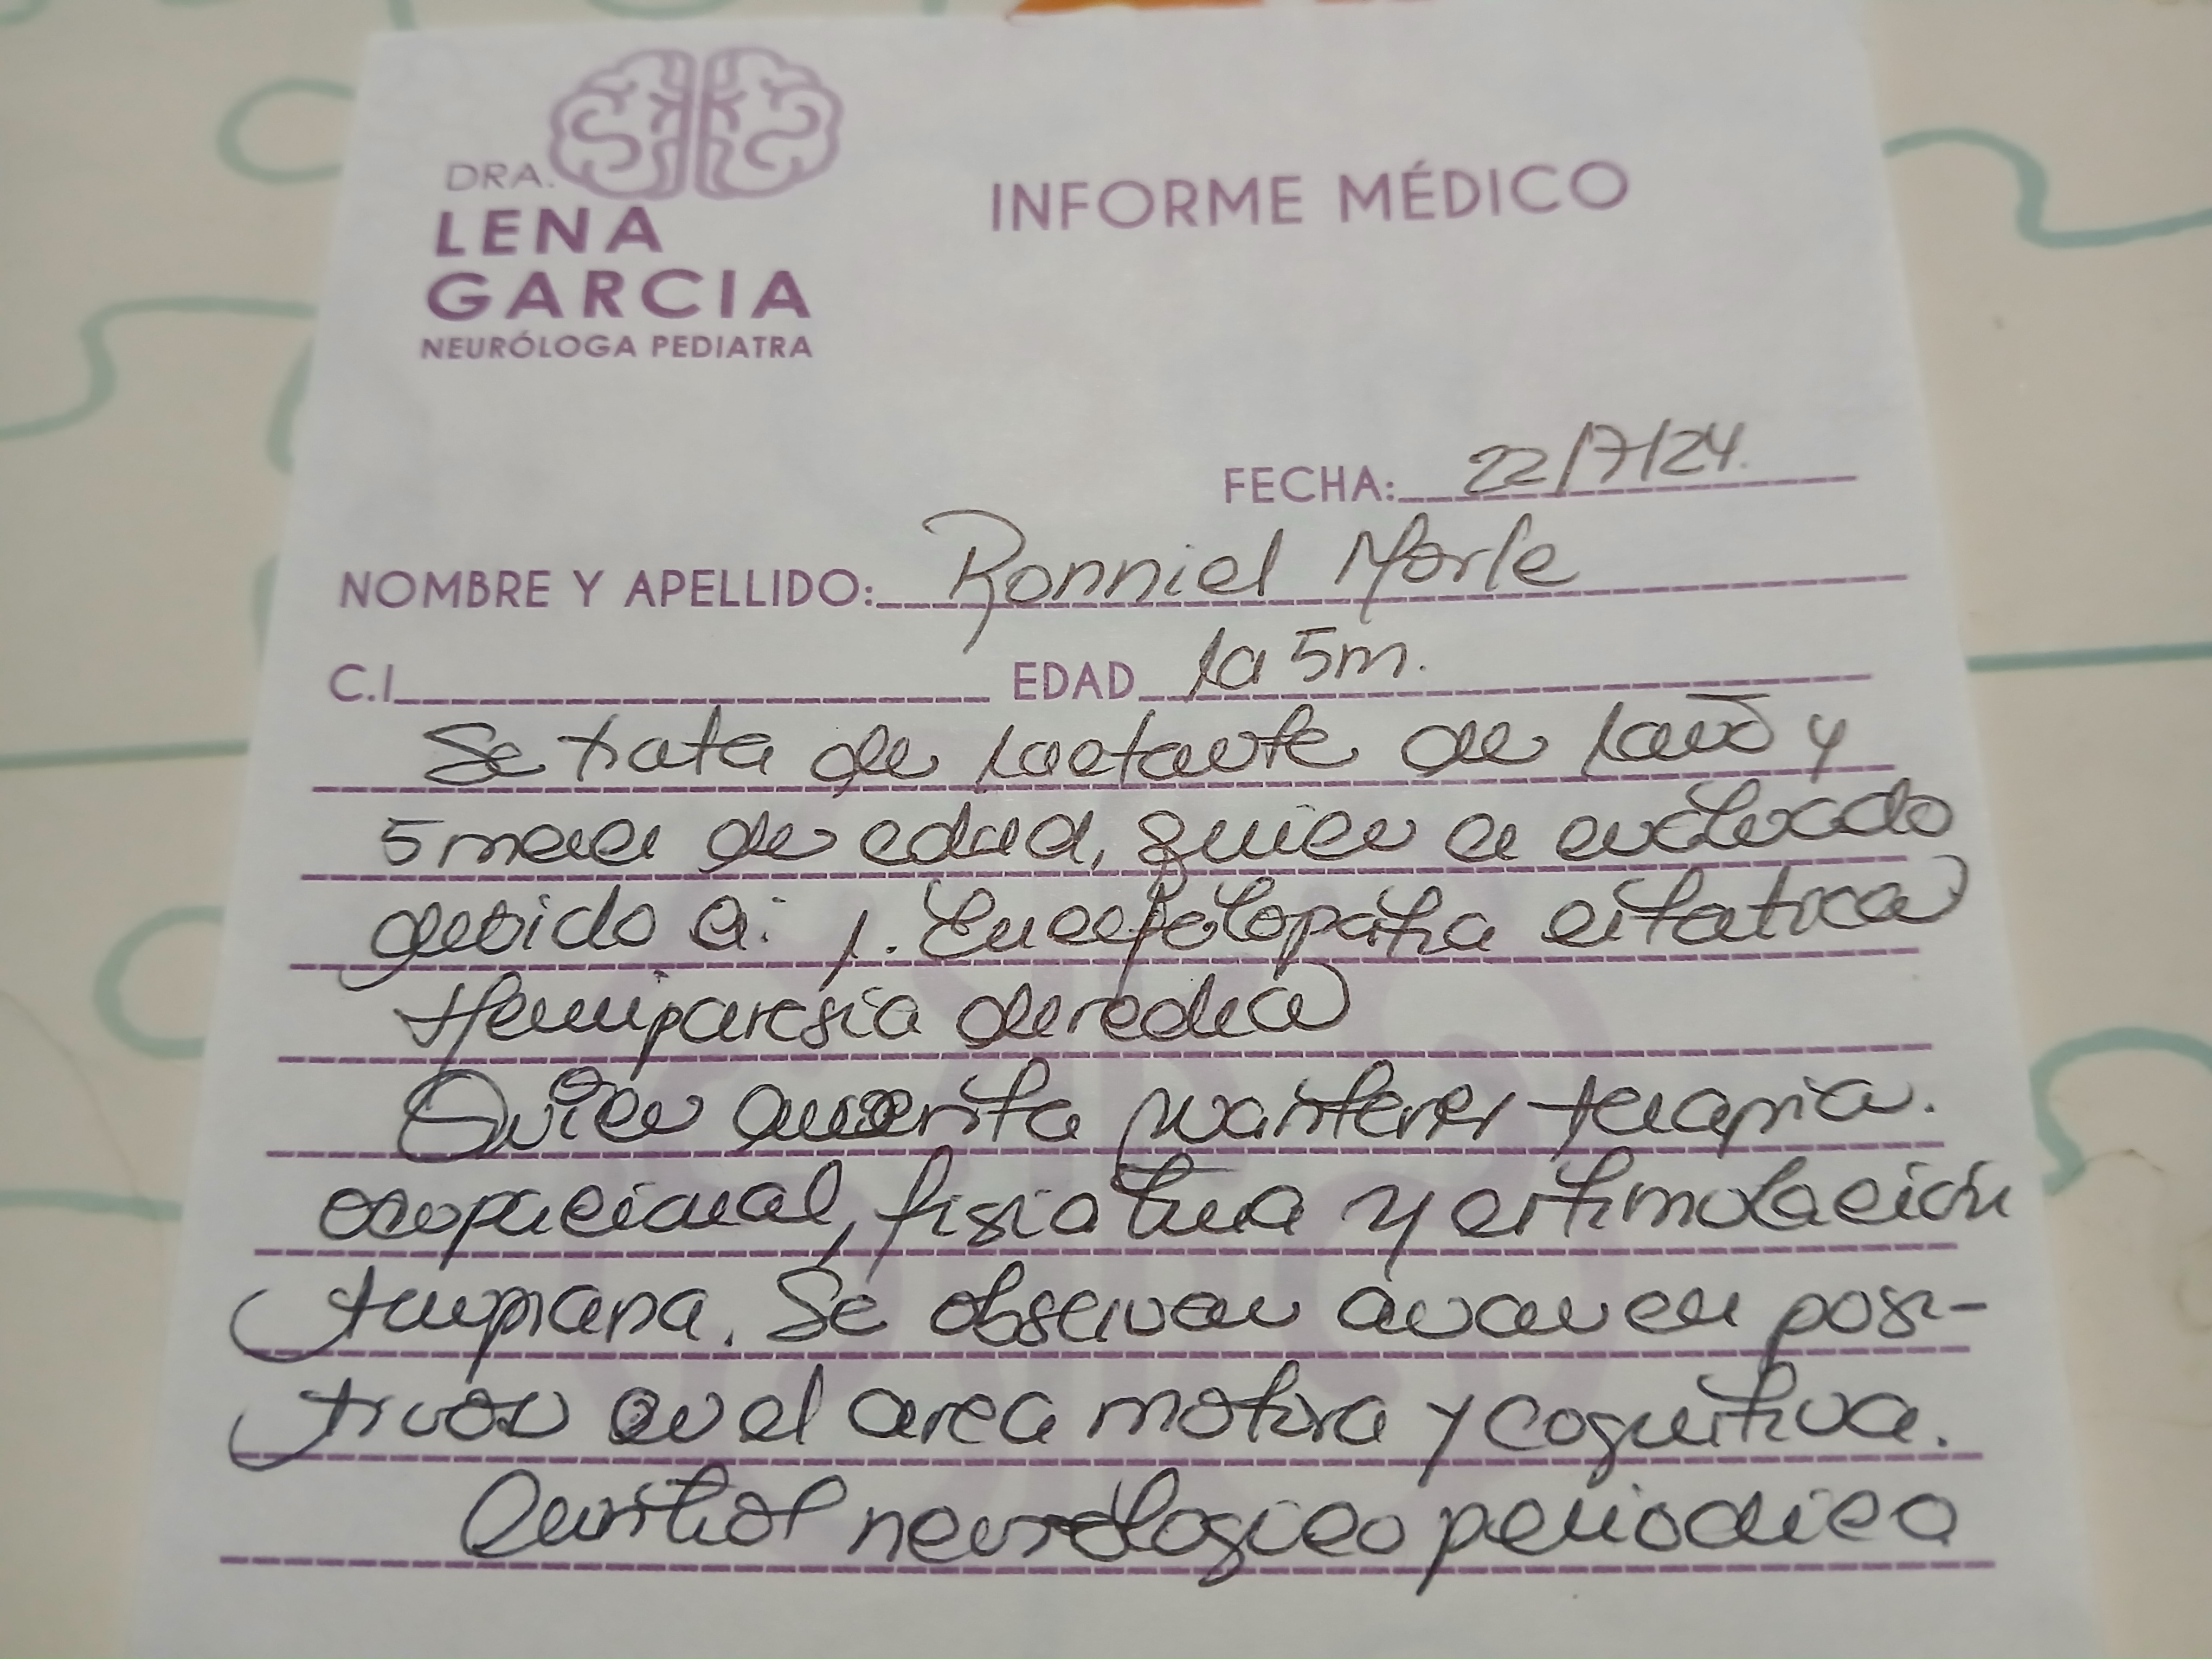 DRA.
LENA
GARCIA
NEURÓLOGA PEDIATRA
INFORME MÉDICO
FECHA: 22/7/24.
NOMBRE Y APELLIDO: Ronniel Morle
C.I. EDAD 1a 5m.
Se trata de lactante de 1 año y
5 meses de edad, quien es evaluado
debido a: 1. Encefalopatia estatica
Hemiparesia derecha
Quien amerita mantener terapia.
ocupacional, fisiatrica y estimulación
temprana. Se observan avances posi-
tivos en el area motora y cognitiva.
Control neurologico periodico